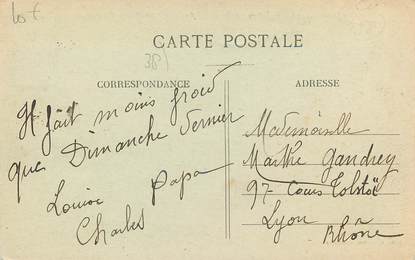 10 f
38)
CARTE POSTALE
CORRESPONDANCE
ADRESSE
Il fait moins froid
que Dimanche dernier
Louise Papa
Charles
Mademoiselle
Marthe Gandrey
97 - Cours Tolstoï
Lyon
Rhône